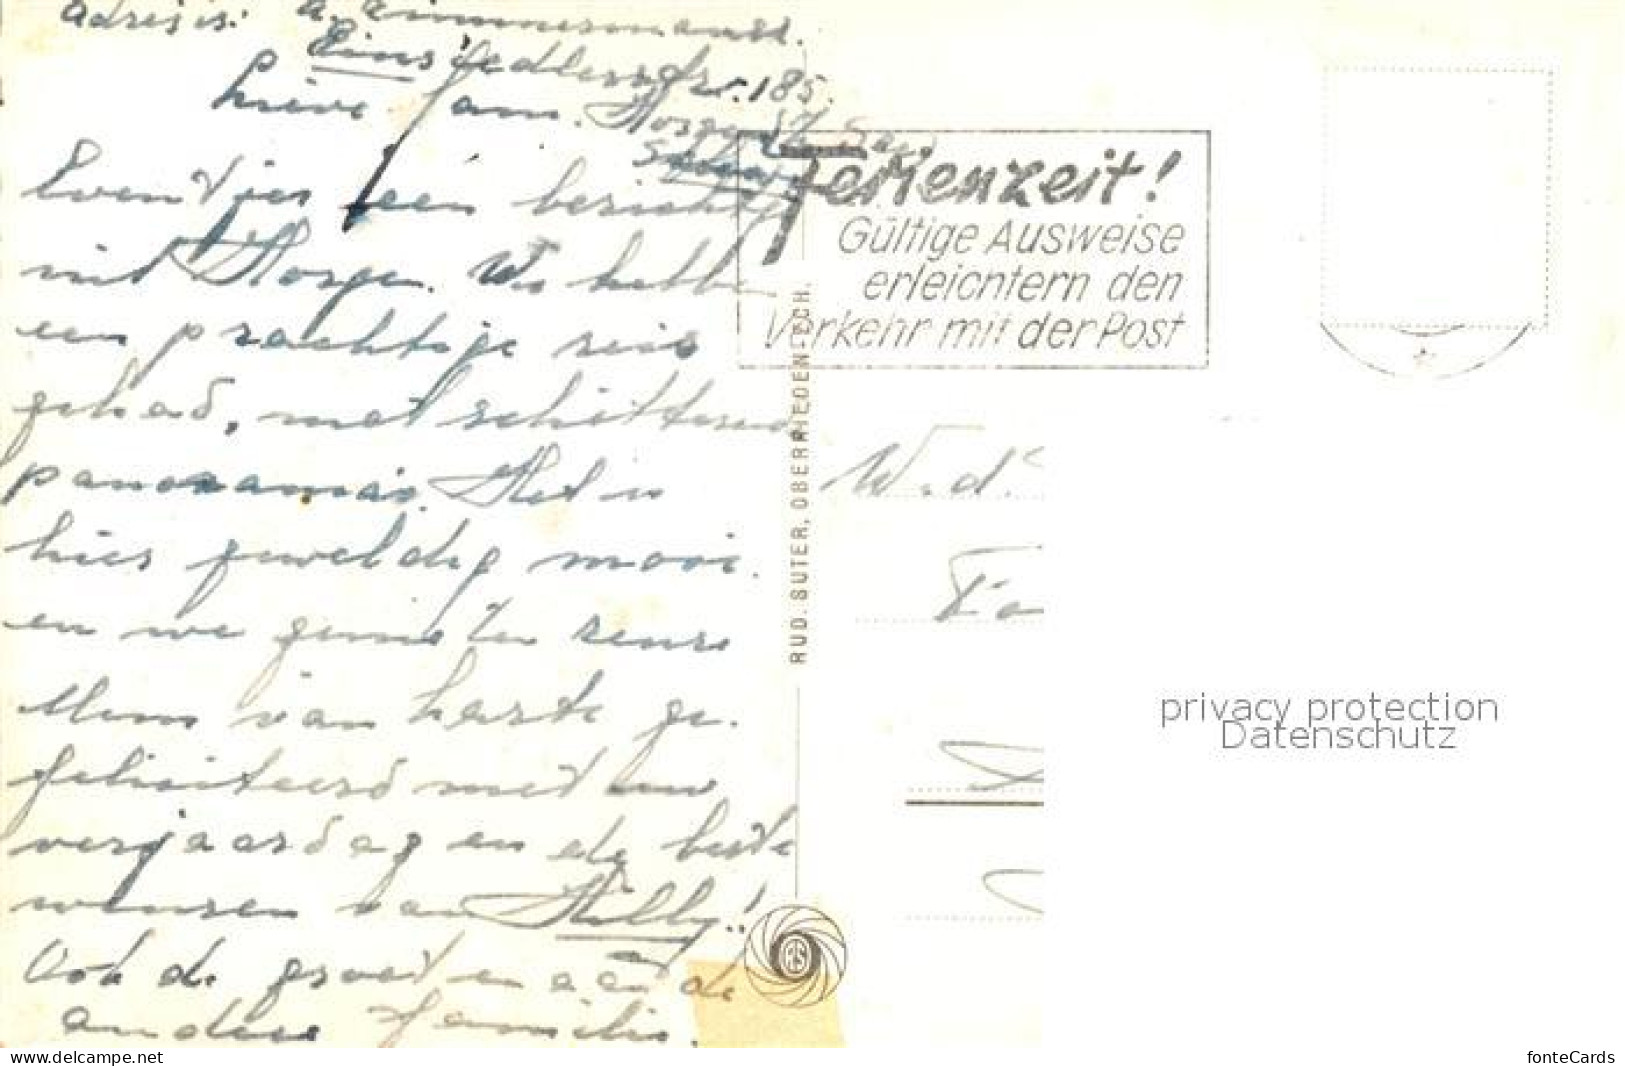 adres is: A. Zimmermann
Einsiedlerstr. 185.
Lieve fam. Horgen
Eventjes een bericht
uit Horgen. We hebben
een prachtige reis
gehad, met schitterend
panorama's. Het is
hier geweldig mooi.
en we genieten reuze
Mem van harte ge-
feliciteerd met uw
verjaardag en de beste
wensen van Hilly!
Ook de groeten aan de
andere familie.
Ferienzeit!
Gültige Ausweise
erleichtern den
Verkehr mit der Post
RUD. SUTER, OBERRIEDEN-ZCH.
RS
W. d.
Fa
privacy protection
Datenschutz
www.delcampe.net
fonteCards